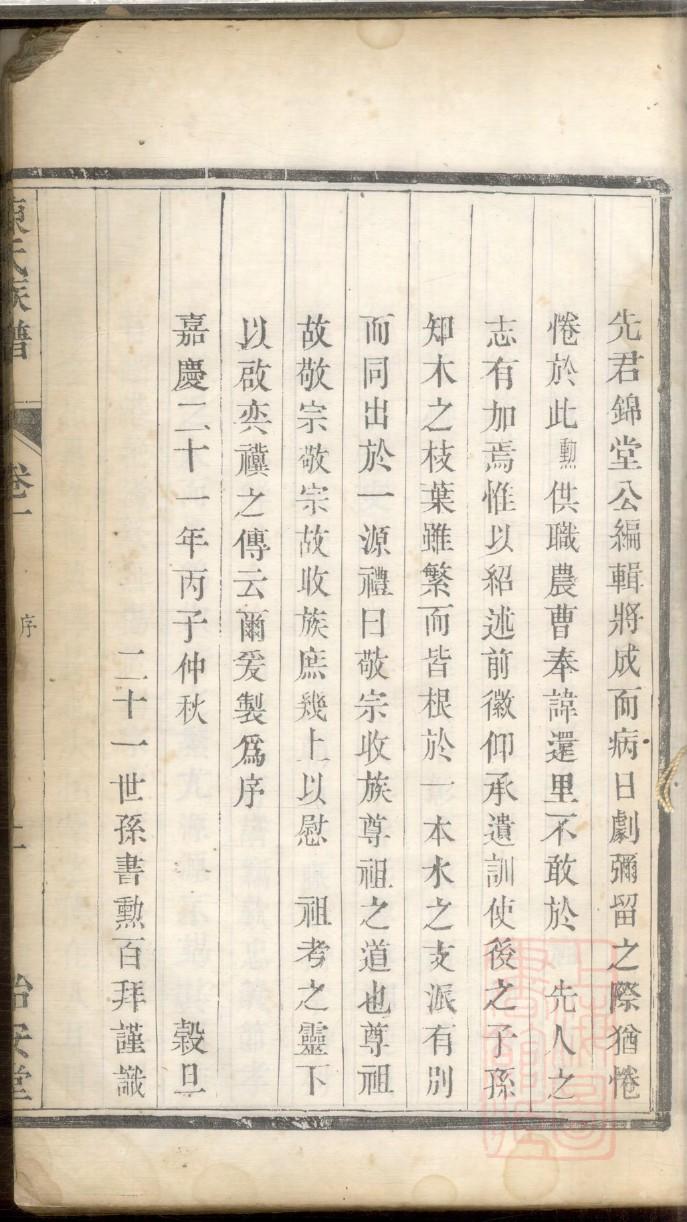 先君錦堂公編輯將成而病日劇彌留之際猶惓
惓於此勲供職農曹奉諱還里不敢於　先人之
志有加焉惟以紹述前徽仰承遺訓使後之子孫
知木之枝葉雖繁而皆根於一本水之支派有別
而同出於一源禮曰敬宗收族尊祖之道也尊祖
故敬宗敬宗故收族庶幾上以慰　祖考之靈下
以啟奕禩之傳云爾爰製爲序
嘉慶二十一年丙子仲秋　穀旦
二十一世孫書勲百拜謹識
氏族譜
卷一
序
堂